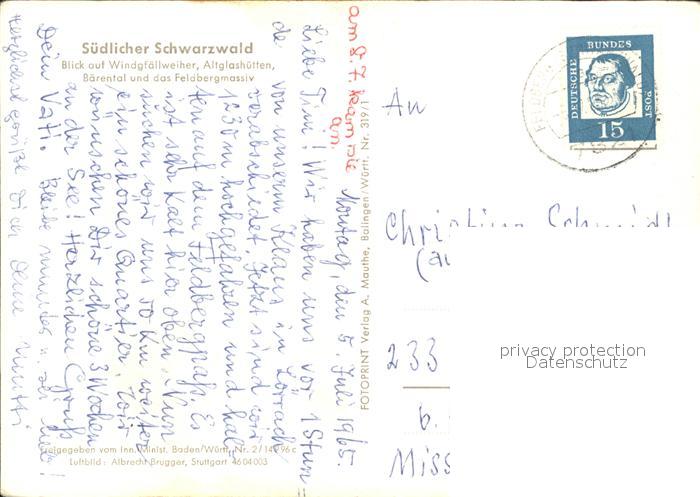 Südlicher Schwarzwald
Blick auf Windgfällweiher, Altglashütten,
Bärental und das Feldbergmassiv
am 8. 7. kam sie
an.
Montag, den 5. Juli 1965.
Liebe Tini! Wir haben uns vor 1 Stun=
de von unserm Klaus in Lörrach
verabschiedet. Jetzt sind wir
1230 m hochgefahren und hal=
ten auf dem Feldbergpaß. Es
ist sehr kalt hier oben. Nun
suchen wir uns 50 km weiter
ein schönes Quartier. Wir
wünschen Dir schöne 3 Wochen
an der See! Herzlichen Gruß
Dein Vati. Bleibe munter u.
Herzlichst grüßt Dich Deine Mutti
Freigegeben vom Inn. Minist. Baden/Württ. Nr. 2/14796 c
Luftbild: Albrecht Brugger, Stuttgart 4604003
FOTOPRINT Verlag A. Mauthe, Balingen/Württ. Nr. 319/1
DEUTSCHE BUNDESPOST
15
An
Christine Schmidt
233
6.
Miss
privacy protection
Datenschutz